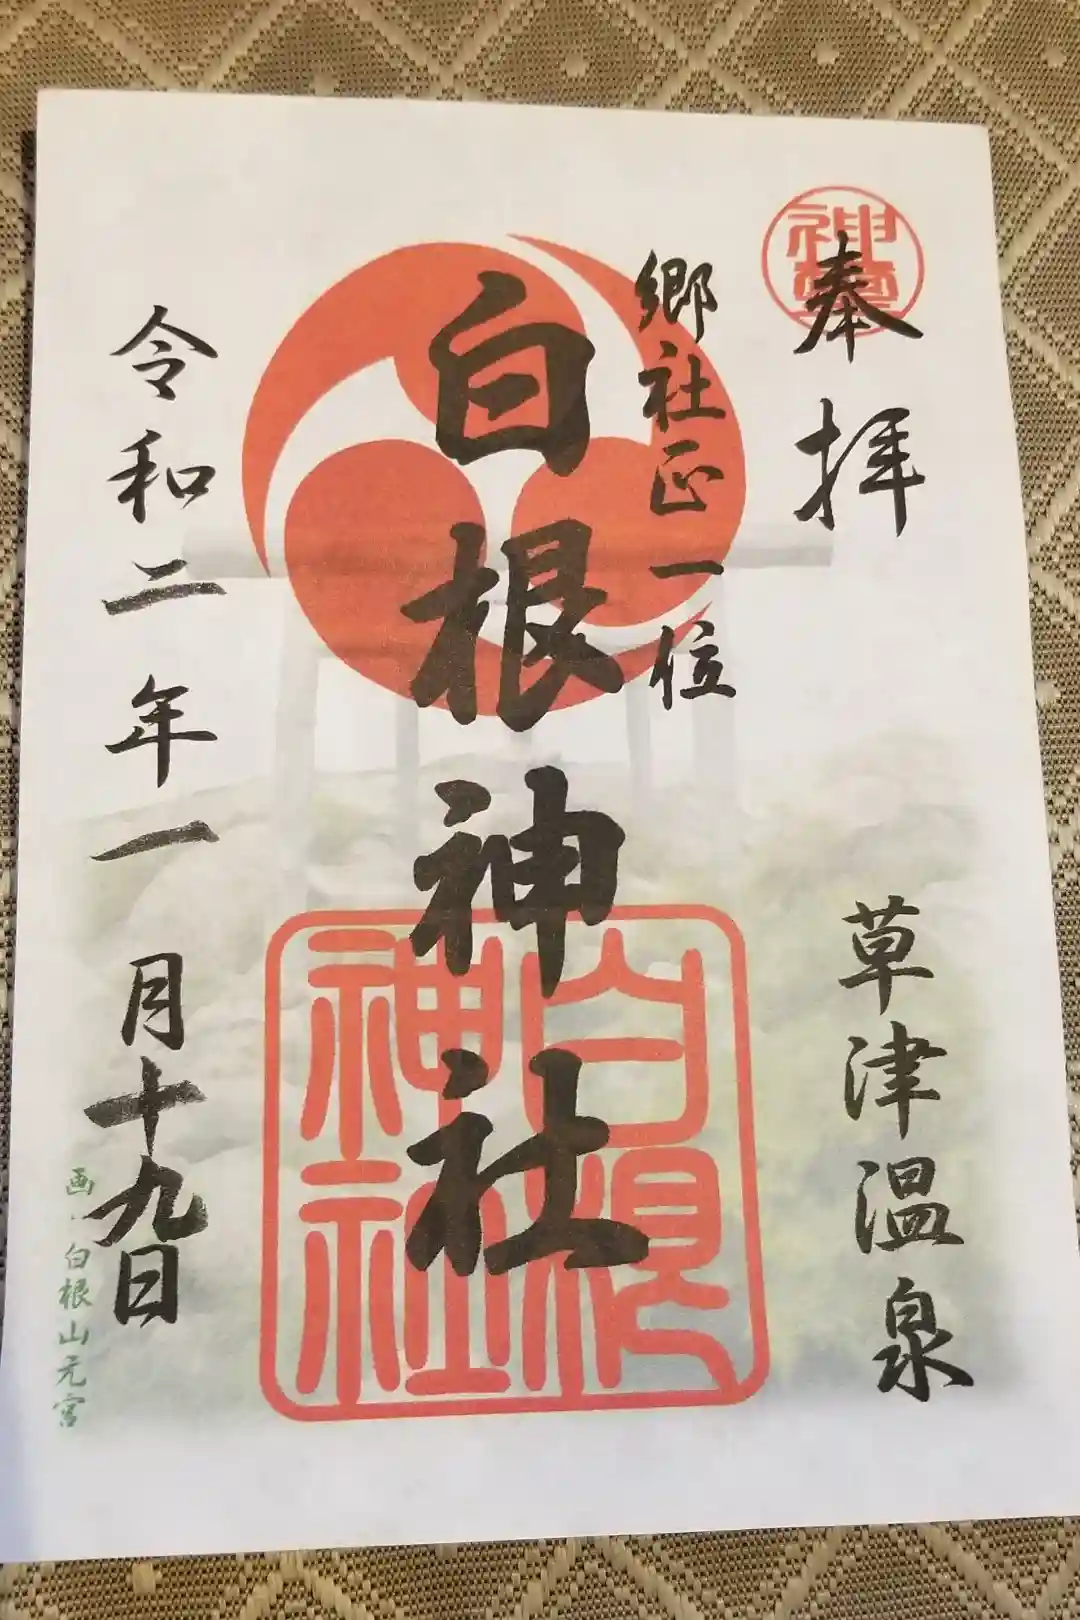 奉拝
草津温泉
郷社正一位
白根神社
白根
神社
令和二年一月十九日
画・白根山元宮